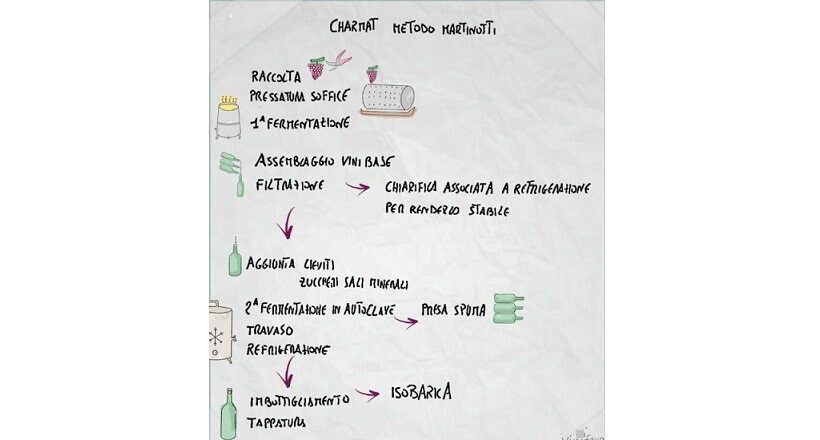 CHARMAT METODO MARTINOTTI
RACCOLTA
PRESSATURA SOFFICE
1ª FERMENTAZIONE
ASSEMBLAGGIO VINI BASE
FILTRAZIONE
CHIARIFICA ASSOCIATA A REFRIGERAZIONE
PER RENDERLO STABILE
AGGIUNTA LIEVITI
ZUCCHERI SALI MINERALI
2ª FERMENTAZIONE IN AUTOCLAVE
PRESA SPUMA
TRAVASO
REFRIGERAZIONE
IMBOTTIGLIAMENTO
ISOBARICA
TAPPATURA